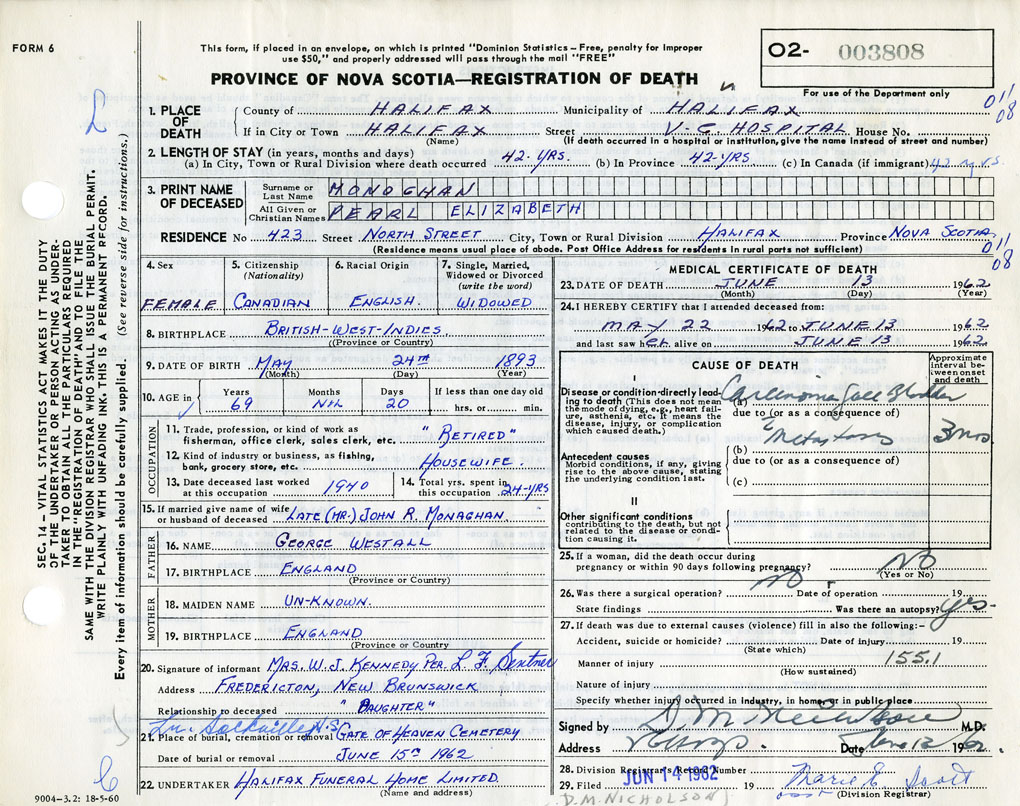 FORM 6
This form, if placed in an envelope, on which is printed "Dominion Statistics – Free, penalty for improper
use $50," and properly addressed will pass through the mail "FREE"
O2- 003808
PROVINCE OF NOVA SCOTIA—REGISTRATION OF DEATH
For use of the Department only
011
08
1. PLACE OF DEATH
County of HALIFAX Municipality of HALIFAX
If in City or Town HALIFAX Street V-G. HOSPITAL House No.
(Name) (If death occurred in a hospital or institution, give the name instead of street and number)
2. LENGTH OF STAY (in years, months and days)
(a) In City, Town or Rural Division where death occurred 42-YRS. (b) In Province 42-YRS (c) In Canada (if immigrant) 42 yrs.
3. PRINT NAME OF DECEASED
Surname or Last Name MONOGHAN
All Given or Christian Names PEARL ELIZABETH
RESIDENCE No 423 Street NORTH STREET City, Town or Rural Division HALIFAX Province NOVA SCOTIA
(Residence means usual place of abode. Post Office Address for residents in rural parts not sufficient)
011
08
4. Sex FEMALE
5. Citizenship (Nationality) CANADIAN
6. Racial Origin ENGLISH.
7. Single, Married, Widowed or Divorced (write the word) WIDOWED
8. BIRTHPLACE BRITISH-WEST-INDIES
(Province or Country)
9. DATE OF BIRTH MAY 24TH 1893
(Month) (Day) (Year)
10. AGE in Years 69 Months NIL Days 20 If less than one day old hrs. or min.
OCCUPATION
11. Trade, profession, or kind of work as
fisherman, office clerk, sales clerk, etc. "RETIRED"
12. Kind of industry or business, as fishing,
bank, grocery store, etc. HOUSEWIFE.
13. Date deceased last worked
at this occupation 1940
14. Total yrs. spent in
this occupation 24-YRS
15. If married give name of wife
or husband of deceased LATE (MR.) JOHN R. MONAGHAN.
FATHER
16. NAME GEORGE WESTALL
17. BIRTHPLACE ENGLAND
(Province or Country)
MOTHER
18. MAIDEN NAME UN-KNOWN.
19. BIRTHPLACE ENGLAND
(Province or Country)
20. Signature of informant MRS. W. J. KENNEDY PER. L F
Address FREDERICTON, NEW BRUNSWICK
Relationship to deceased "DAUGHTER"
Sackville N.S.
21. Place of burial, cremation or removal GATE OF HEAVEN CEMETERY
Date of burial or removal JUNE 15TH 1962
22. UNDERTAKER HALIFAX FUNERAL HOME LIMITED.
(Name and address)
9004–3.2: 18-5-60
MEDICAL CERTIFICATE OF DEATH
23. DATE OF DEATH JUNE 13 1962
(Month) (Day) (Year)
24. I HEREBY CERTIFY that I attended deceased from:
MAY 22 1962 to JUNE 13 1962
and last saw her alive on JUNE 13 1962
CAUSE OF DEATH
Approximate interval between onset and death
I
Disease or condition directly leading to death (This does not mean the mode of dying, e.g., heart failure, asthenia, etc. It means the disease, injury, or complication which caused death.)
(a) Carcinoma Gall Bladder
due to (or as a consequence of)
Metastases 3 mos.
(b)
Antecedent causes
Morbid conditions, if any, giving rise to the above cause, stating the underlying condition last.
due to (or as a consequence of)
(c)
II
Other significant conditions
contributing to the death, but not related to the disease or condition causing it.
25. If a woman, did the death occur during
pregnancy or within 90 days following pregnancy? NO
(Yes or No)
26. Was there a surgical operation? NO Date of operation 19
State findings Was there an autopsy? Yes-
27. If death was due to external causes (violence) fill in also the following:–
Accident, suicide or homicide? Date of injury 19
(State which)
Manner of injury 155.1
(How sustained)
Nature of injury
Specify whether injury occurred in industry, in home or in public place
Signed by D. M. Nicholson M.D.
Address Date June 13 1962
28. Division Registrar's Record Number
29. Filed JUN 14 1962 19 Marie E. Scott
(Division Registrar)
D.M. NICHOLSON
SEC. 14—VITAL STATISTICS ACT MAKES IT THE DUTY
OF THE UNDERTAKER OR PERSON ACTING AS UNDER-
TAKER TO OBTAIN ALL THE PARTICULARS REQUIRED
IN THE "REGISTRATION OF DEATH" AND TO FILE THE
SAME WITH THE DIVISION REGISTRAR WHO SHALL ISSUE THE BURIAL PERMIT.
WRITE PLAINLY WITH UNFADING INK. THIS IS A PERMANENT RECORD.
Every item of information should be carefully supplied. (See reverse side for instructions.)